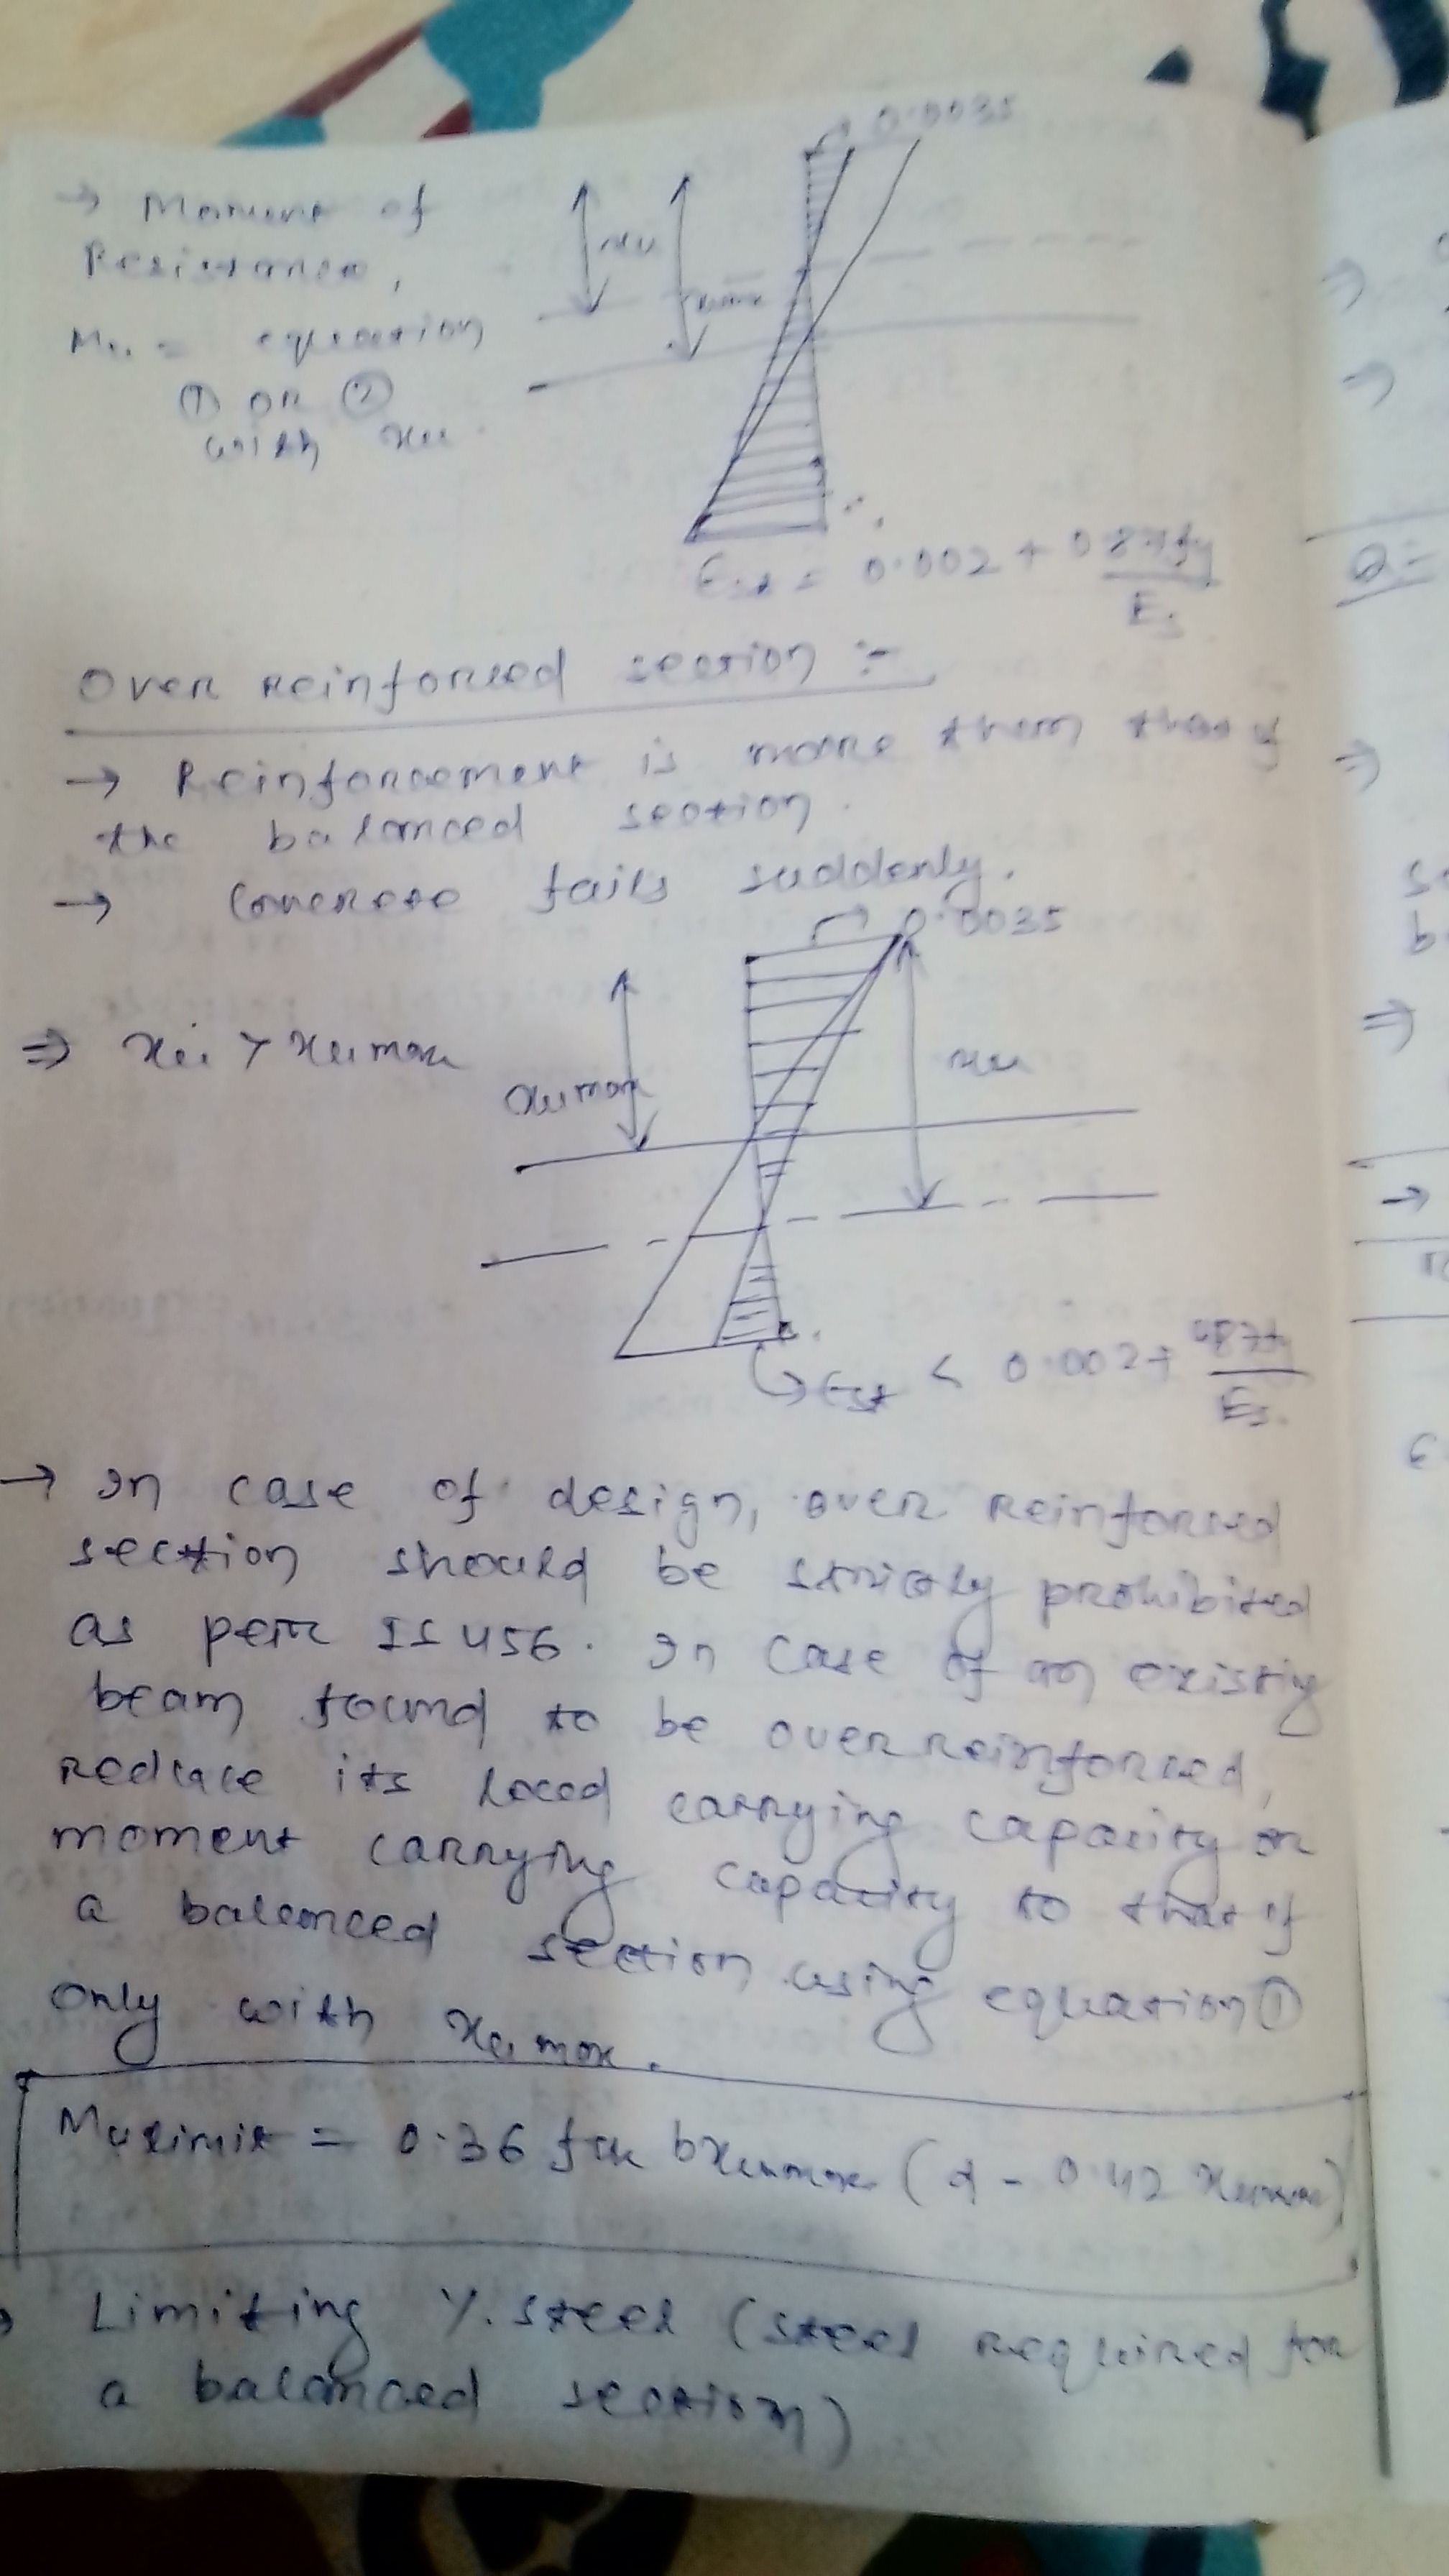 0.0035
→ Moment of
Resistance,
Mu = equation
① or ②
with xu.
xu
xumax
Est = 0.002 + 0.87fy / Es
Over reinforced section :-
→ Reinforcement is more than that of
the balanced section.
→ Concrete fails suddenly.
0.0035
⇒ xu > xumax
xumax
xu
Est < 0.002 + 0.87fy / Es.
→ In case of design, over reinforced
section should be strictly prohibited
as per IS 456. In case of an existing
beam found to be over reinforced,
reduce its load carrying capacity or
moment carrying capacity to that of
a balanced section using equation ①
only with xumax.
Mulimit = 0.36 fck bxumax (d - 0.42 xumax)
→ Limiting %. steel (steel required for
a balanced section)